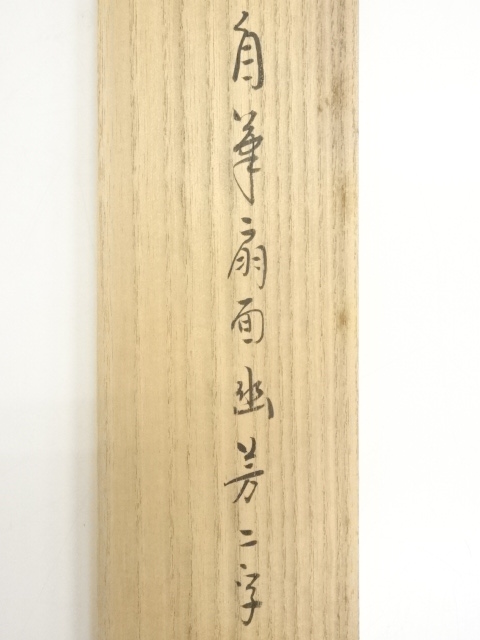 自筆扇面幽芳二字